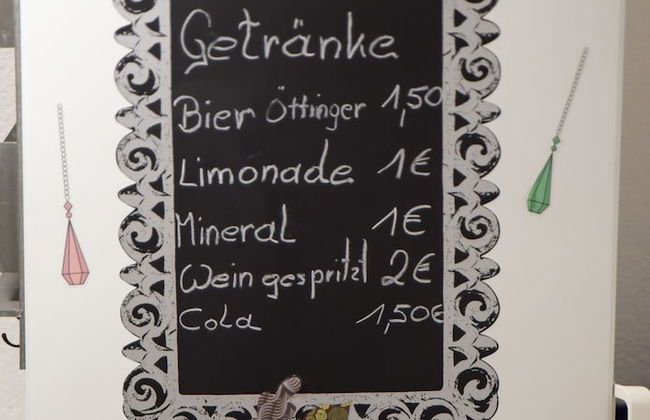 Getränke
Bier Öttinger 1,50
Limonade 1€
Mineral 1€
Wein gespritzt 2€
Cola 1,50€